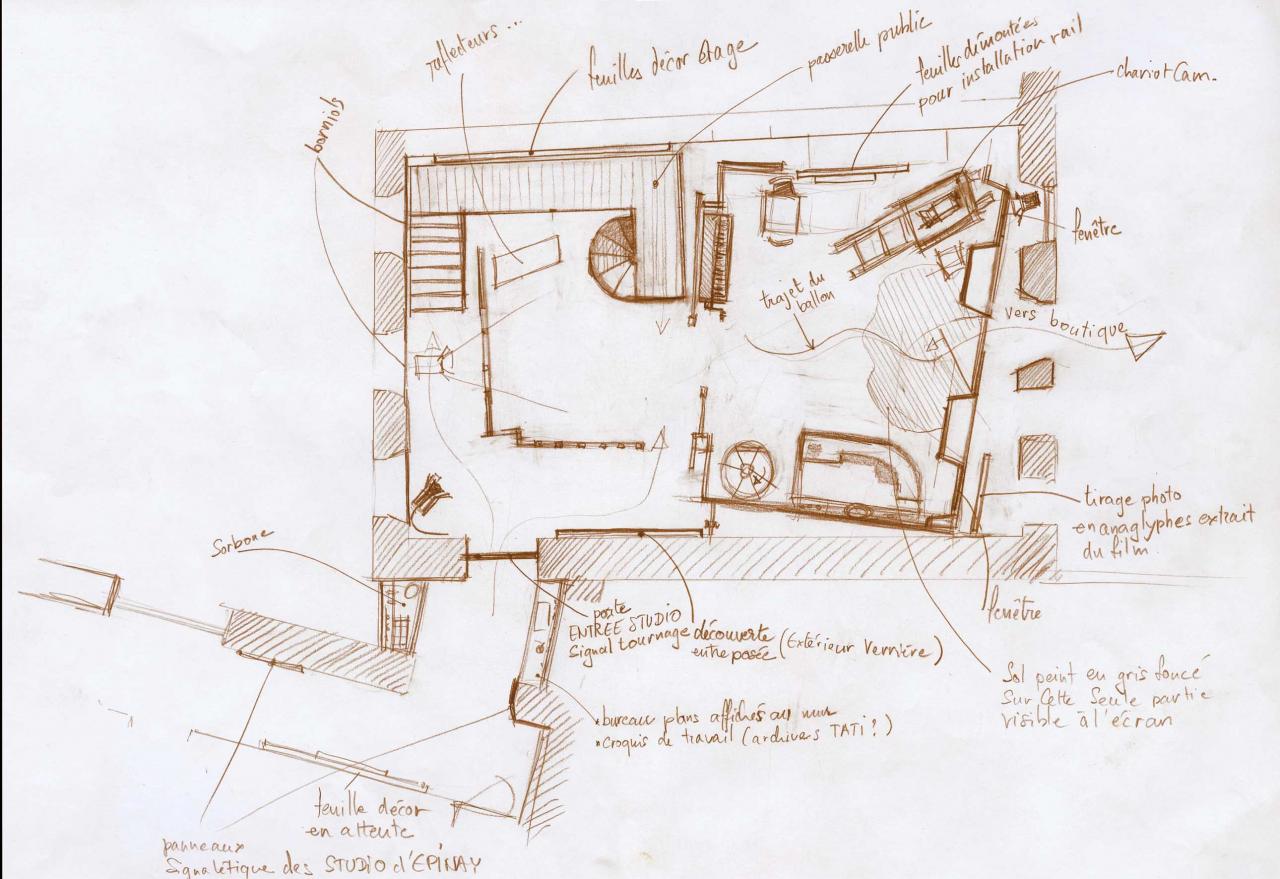 réflecteurs ...
feuilles décor étage
passerelle public
feuilles démontées
pour installation rail
chariot Cam.
borniols
fenêtre
trajet du
ballon
vers boutique
tirage photo
en anaglyphes extrait
du film
Sorbone
porte
ENTREE STUDIO
Signal tournage
découverte
entreposée (Extérieur Verrière)
fenêtre
Sol peint en gris foncé
sur cette seule partie
visible à l'écran
bureau plans affichés au mur
croquis de travail (archives TATI ?)
feuille décor
en attente
panneaux
Signalétique des STUDIO d'EPINAY